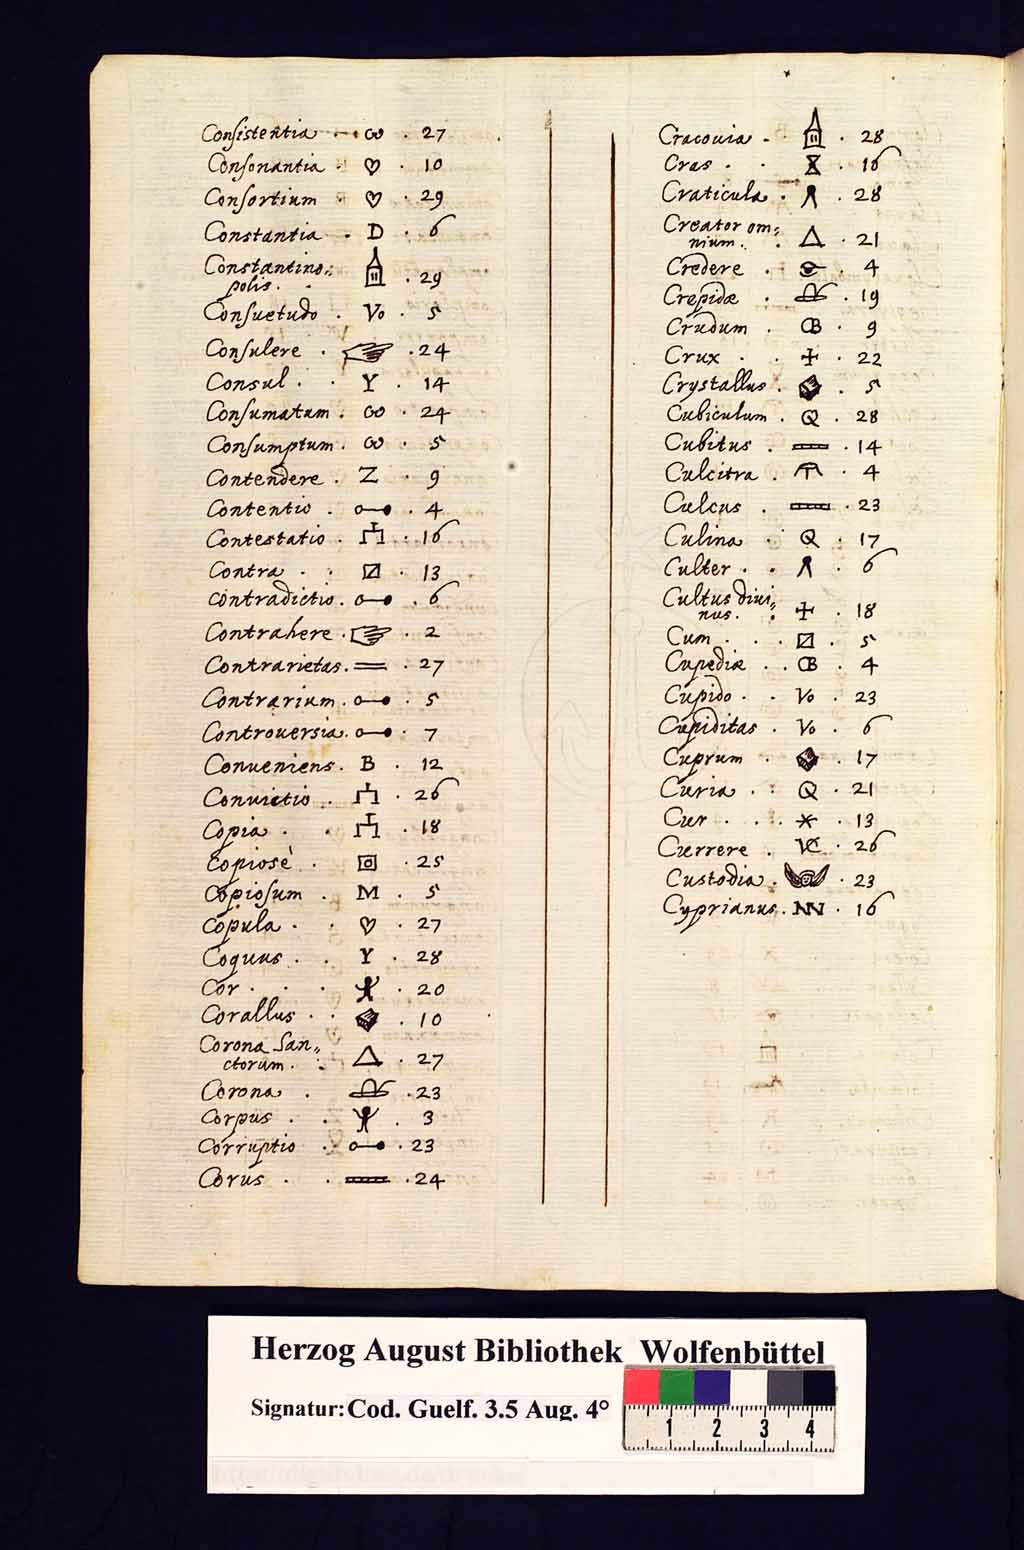 Consistentia . ꞷ . 27
Consonantia . ♡ . 10
Consortium . ♡ . 29
Constantia . D . 6
Constantino⸗
polis . . 29
Consuetudo . Vo . 5
Consulere . ☞ . 24
Consul . . Y . 14
Consumatum . ꞷ . 24
Consumptum . ꞷ . 5
Contendere . Z . 9
Contentio . . 4
Contestatio . . 16
Contra . . ⍁ . 13
Contradictio . . 6
Contrahere . ☞ . 2
Contrarietas . = . 27
Contrarium . . 5
Controuersia . . 7
Conueniens . B . 12
Conuictio . . 26
Copia . . . 18
Copiosè . . 25
Copiosum . M . 5
Copula . . ♡ . 27
Coquus . . Y . 28
Cor . . . . 20
Corallus . . . 10
Corona San⸗
ctorum . . △ . 27
Corona . . 23
Corpus . . . 3
Corruptio . . 23
Corus . . . 24
Cracouia . . 28
Cras . . . 16
Craticula . . 28
Creator om⸗
nium . . △ . 21
Credere . . 4
Crepidæ . . 19
Crudum . CB . 9
Crux . . ✢ . 22
Crystallus . . 5
Cubiculum . Q . 28
Cubitus . . 14
Culcitra . . 4
Culcus . . 23
Culina . Q . 17
Culter . . . 6
Cultus diui⸗
nus . . ✢ . 18
Cum . . . ⍁ . 5
Cupediæ . . CB . 4
Cupido . . Vo . 23
Cupiditas . Vo . 6
Cuprum . . 17
Curia . . Q . 21
Cur . . . . 13
Currere . VC . 26
Custodia . . 23
Cyprianus . NN . 16
Herzog August Bibliothek Wolfenbüttel
Signatur: Cod. Guelf. 3.5 Aug. 4°
1 2 3 4